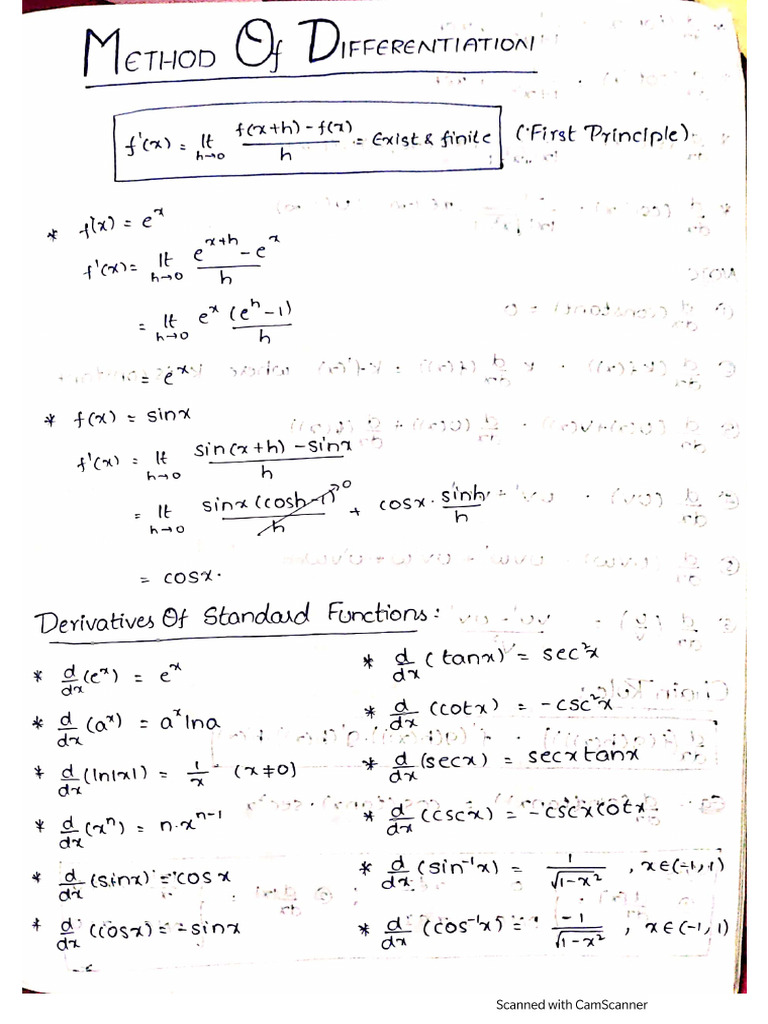 METHOD Of DIFFERENTIATION
f'(x) = lt h→0 (f(x+h) - f(x))/h = Exist & finite (First Principle).
* f(x) = e^x
f'(x) = lt h→0 (e^(x+h) - e^x)/h
= lt h→0 e^x (e^h - 1)/h
= e^x
* f(x) = sinx
f'(x) = lt h→0 (sin(x+h) - sinx)/h
= lt h→0 (sinx(cosh-1))/h →0 + cosx · sinh/h
= cosx.
Derivatives Of Standard Functions:
* d/dx (e^x) = e^x
* d/dx (a^x) = a^x lna
* d/dx (ln|x|) = 1/x (x≠0)
* d/dx (x^n) = n·x^(n-1)
* d/dx (sinx) = cosx
* d/dx (cosx) = -sinx
* d/dx (tanx) = sec²x
* d/dx (cotx) = -csc²x
* d/dx (secx) = secxtanx
* d/dx (cscx) = -cscxcotx
* d/dx (sin⁻¹x) = 1/√(1-x²) , x∈(-1,1)
* d/dx (cos⁻¹x) = -1/√(1-x²) , x∈(-1,1)
Scanned with CamScanner